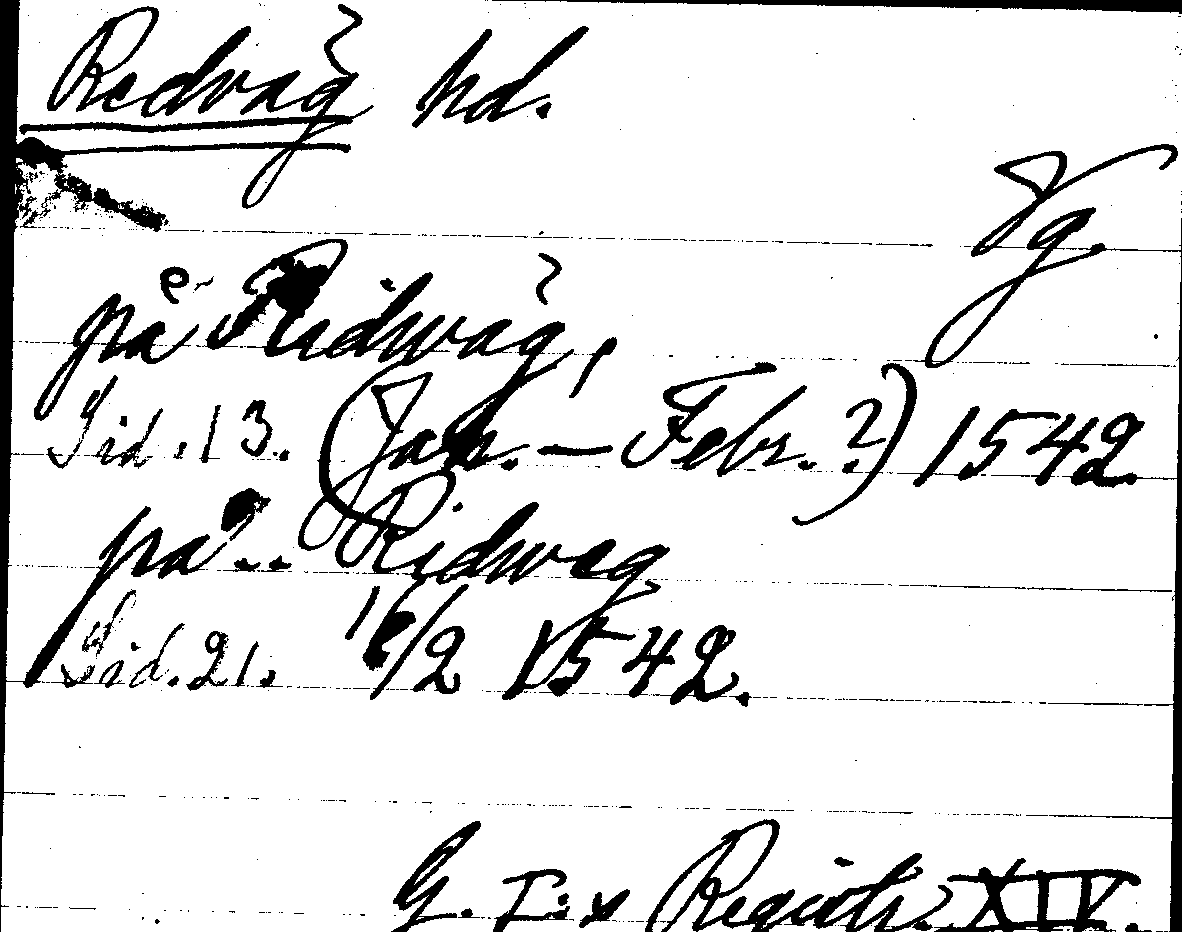 Redvag hd.
Vg.
på Ridwag,
Sid. 13. (Jan. – Febr. ?) 1542.
på .. Ridweg
Sid. 21. 16/2 1542.
G. I:s Registr. XIV.